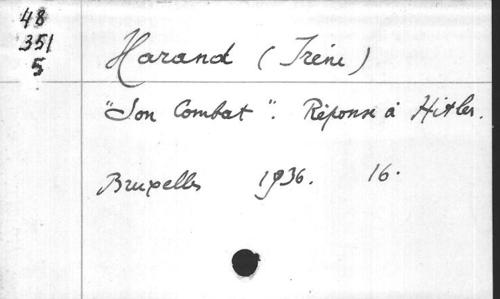 48
351
5
Harand (Irène)
"Son Combat". Réponse à Hitler.
Bruxelles 1936. 16.